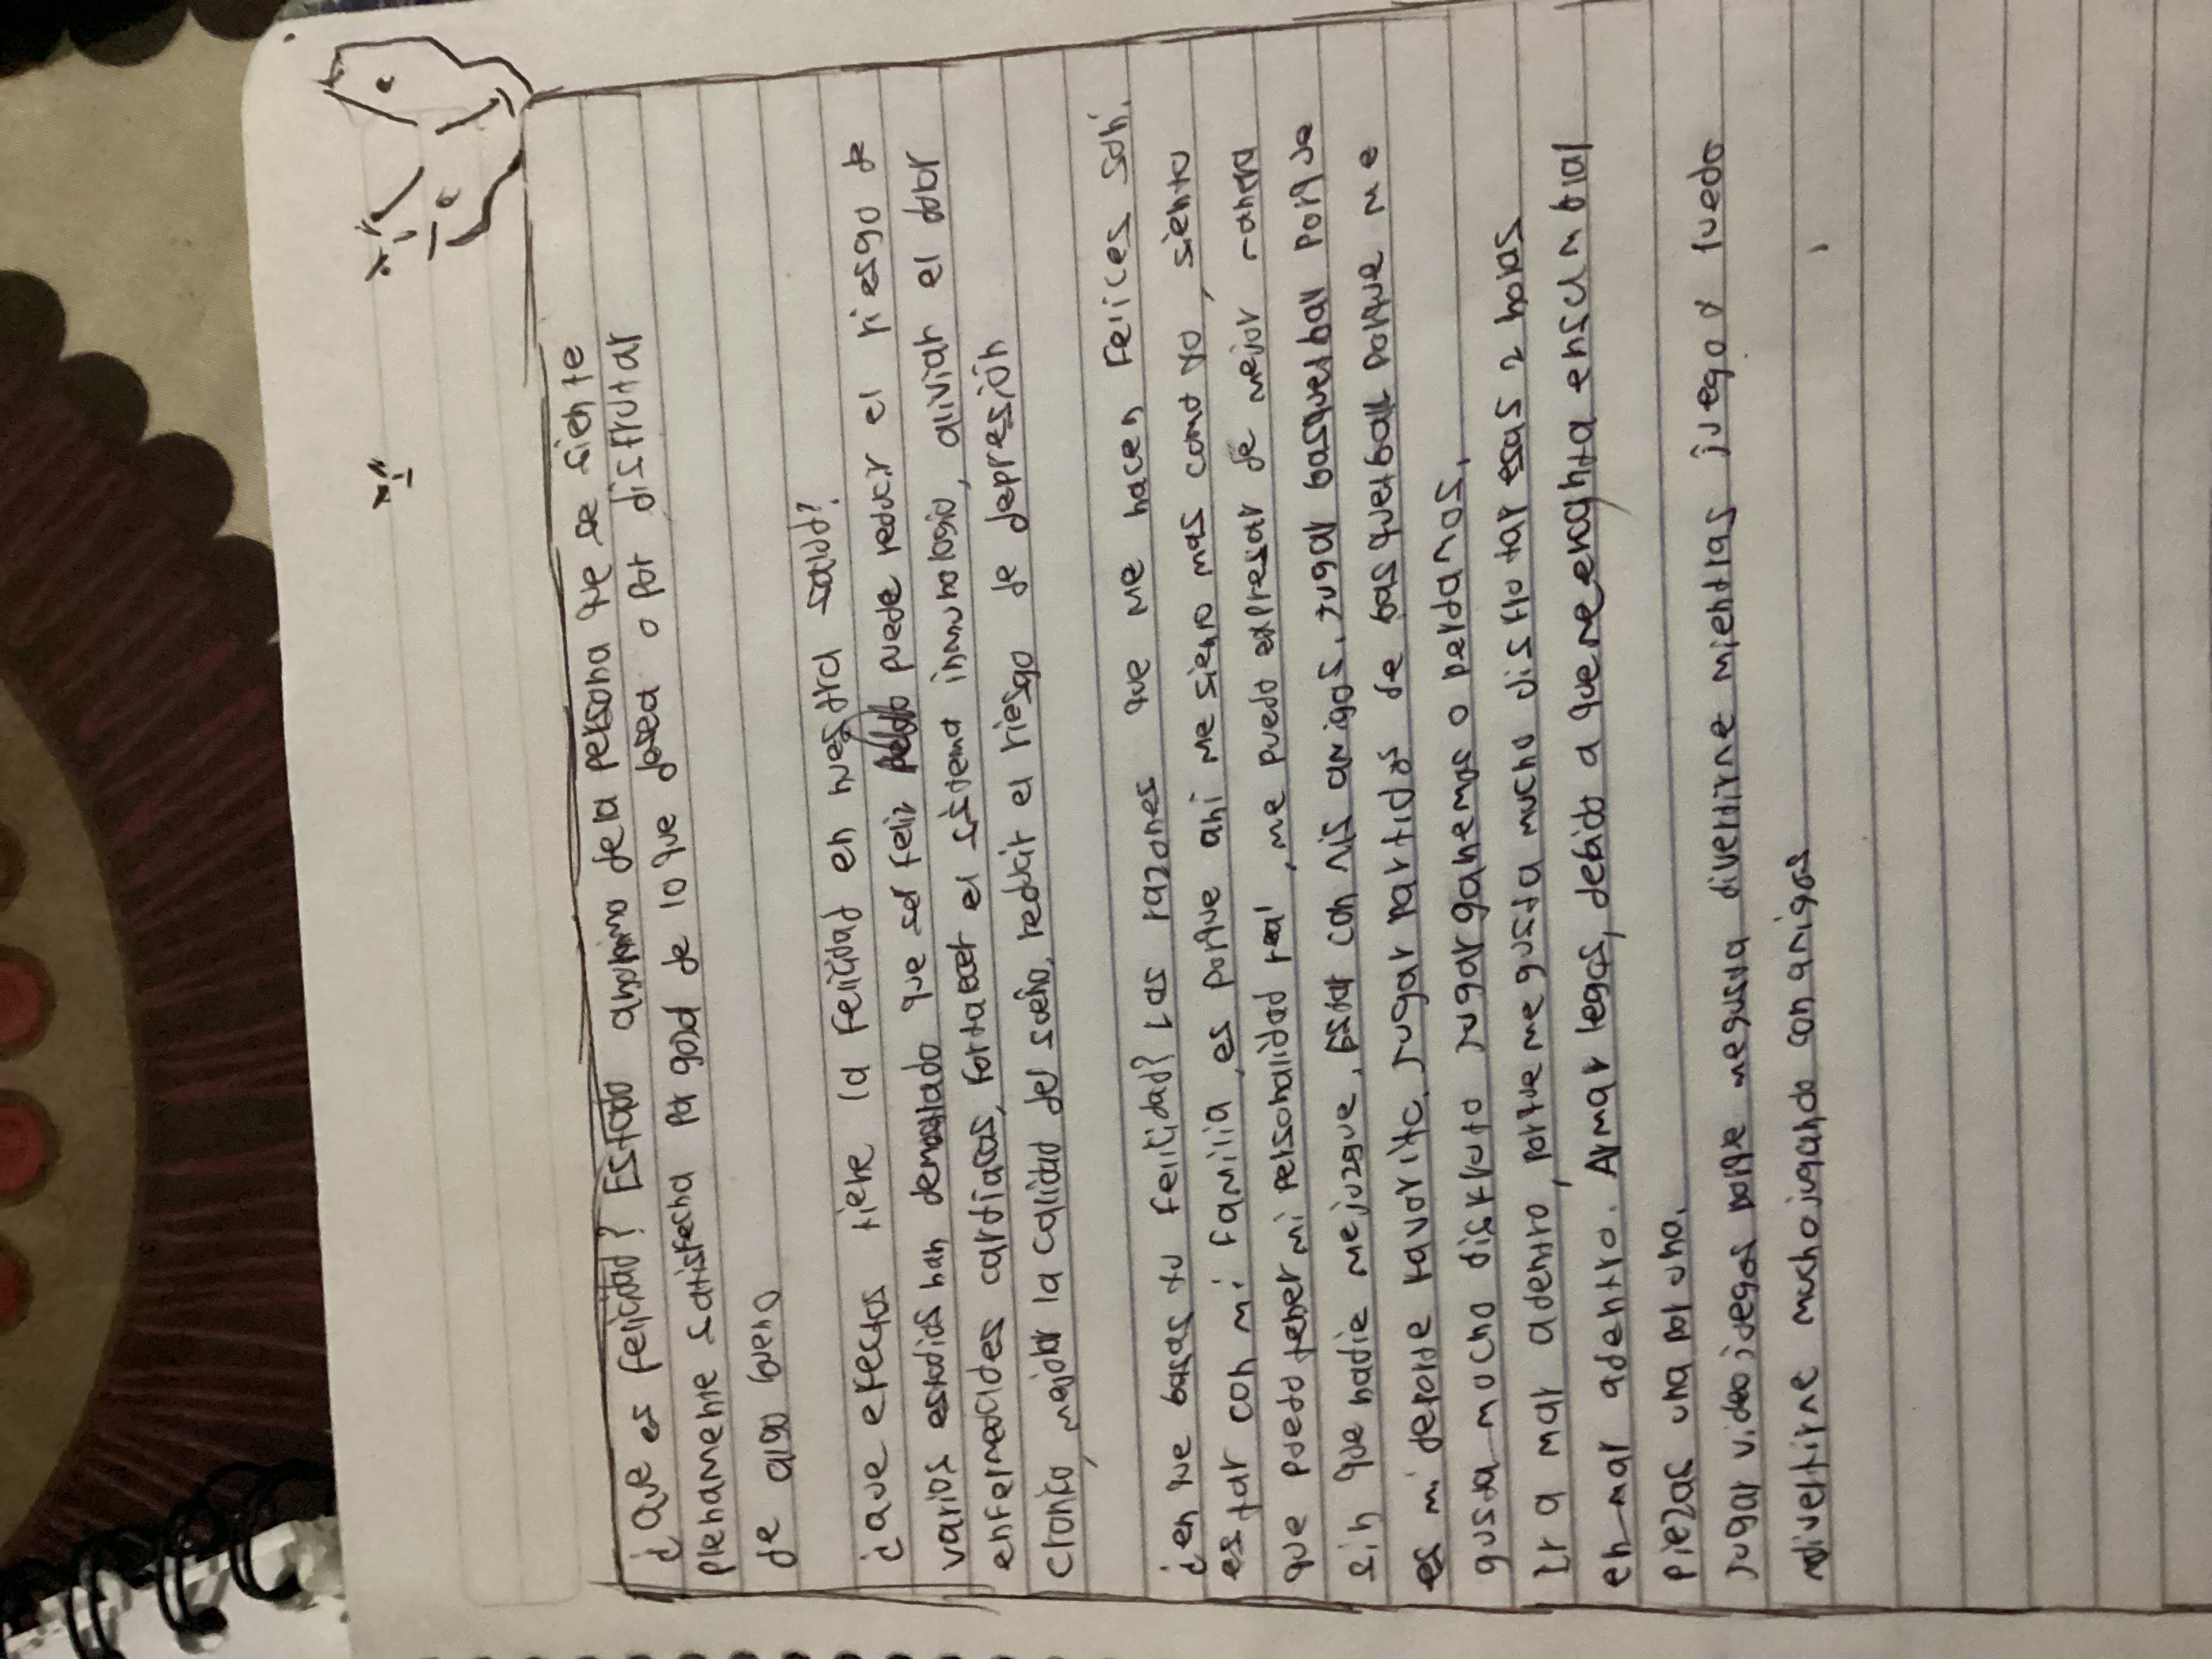 ¿Que es felicidad? Estado anonimo de la persona que se siente
plenamente satisfecha por gozd de lo que desea o por disfrutar
de algo bueno
¿Que efectos tiene la felicidad en nuestra salud?
varios estudios han demostrado que ser feliz puede reducir el riesgo de
enfermedades cardiacas, fortalecer el sistema inmunologio, aliviar el dolor
cronico, mejorar la calidad del sueño, reducir el riesgo de depresión
¿en que basas tu felicidad? Las razones que me hacen felices son.
estar con mi familia, es porque ahi me siento mas como yo, siento
que puedo tener mi personalidad real, me puedo expresar de mejor manera
sin que nadie me juzgue, Estar con mis amigos. Jugar basquetball porque
es mi deporte favorito. Jugar partidos de basquetball porque me
gusta mucho disfruto jugar ganemos o perdamos.
Ir a mar adentro, porque me gusta mucho disfrutar esas 2 horas
en mar adentro. Armar legos, debido a que me encanta ensamblar
piezas una por una.
Jugar videojuegos porque me gusta divertirme mientras juego y puedo
divertirme mucho jugando con amigos